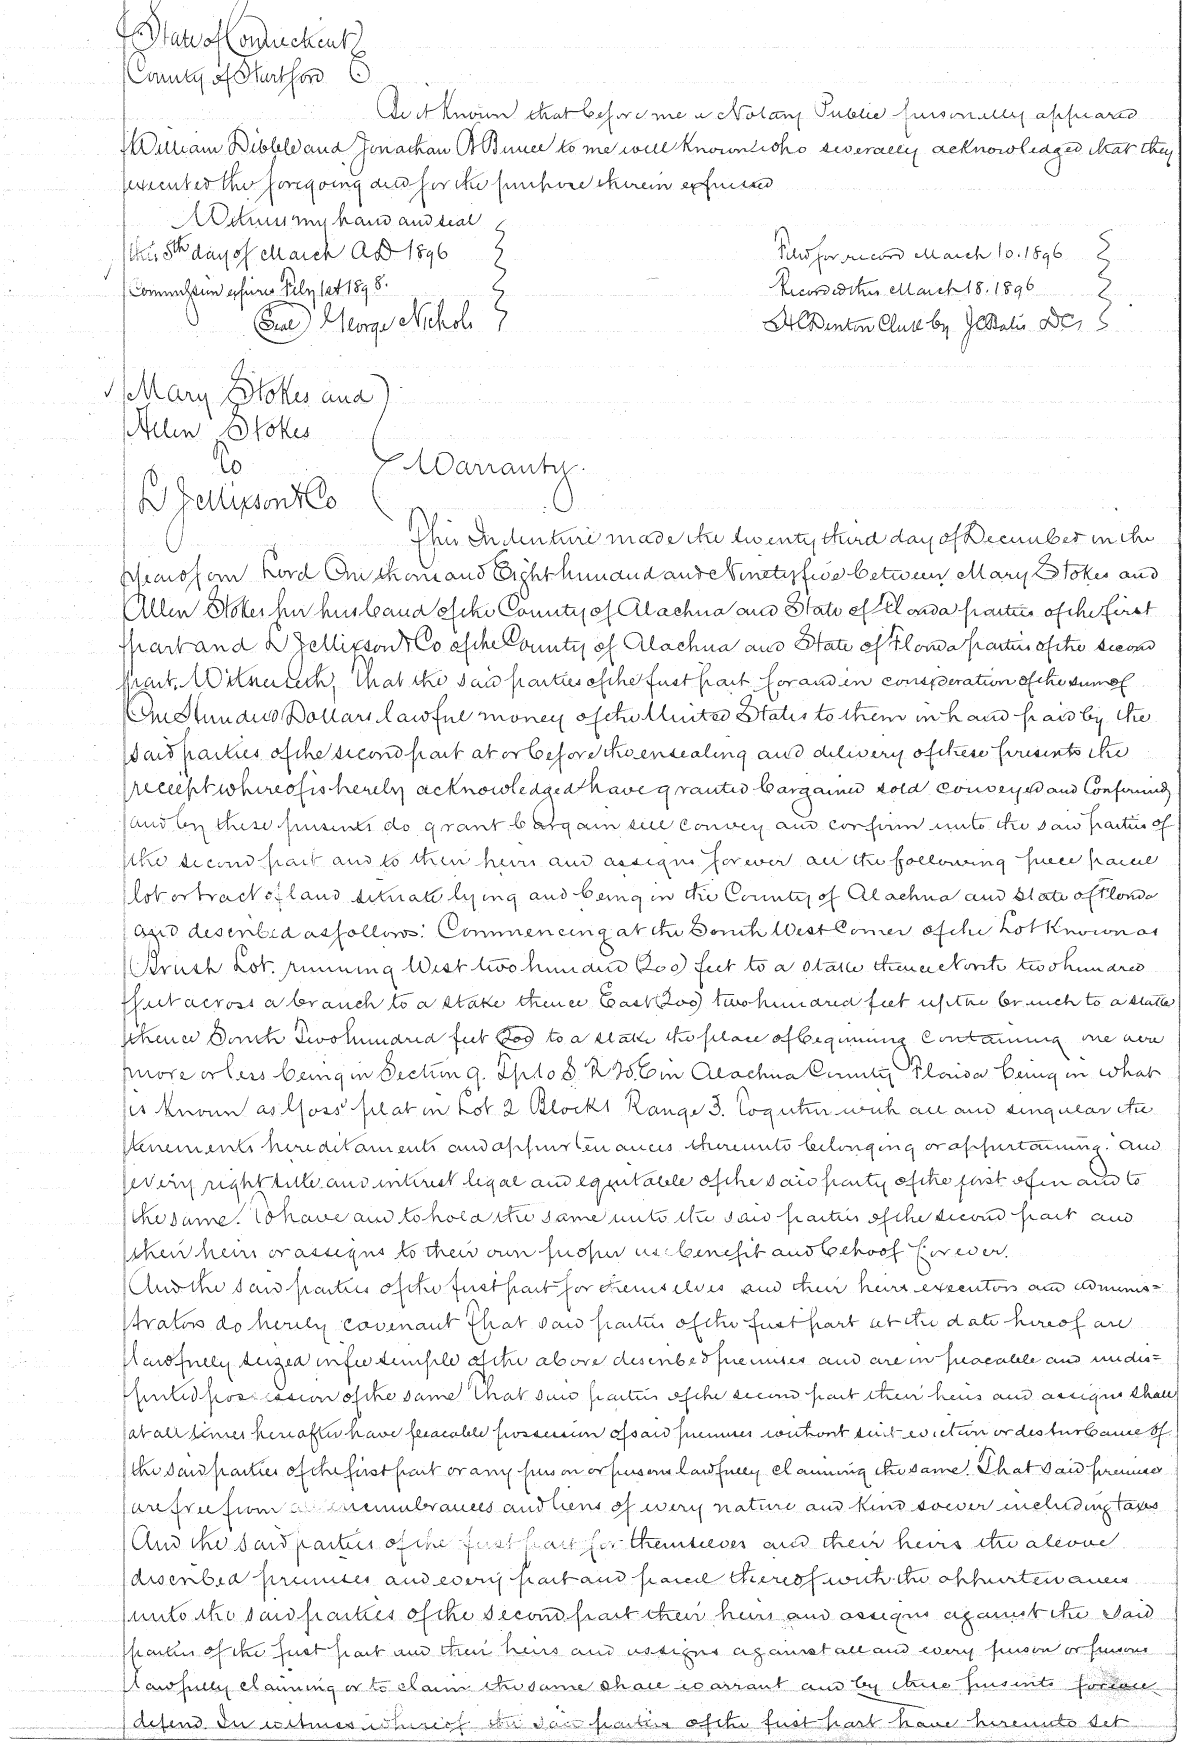 State of Connecticut
County of Hartford
Be it Known that before me a Notary Public personally appeared
William Dibble and Jonathan B Bunce to me well Known who severally acknowledged that they
executed the foregoing deed for the purpose therein expressed
Witness my hand and seal
this 5th day of March AD 1896
Commission expires Feby 1st 1898.
(Seal) George Nichols
Filed for record March 10. 1896
Recorded this March 18. 1896
H C Denton Clerk by J C Bates DC
Mary Stokes and
Allen Stokes
To
Warranty.
L Jellixson & Co
This Indenture made the twenty third day of December in the
year of our Lord One thousand Eight hundred and Ninety five between Mary Stokes and
Allen Stokes her husband of the County of Alachua and State of Florida parties of the first
part and L Jellixson & Co of the County of Alachua and State of Florida parties of the second
part. Witnesseth, That the said parties of the first part for and in consideration of the sum of
One Hundred Dollars lawful money of the United States to them in hand paid by the
said parties of the second part at or before the ensealing and delivery of these presents the
receipt whereof is hereby acknowledged have granted bargained sold conveyed and Confirmed
and by these presents do grant bargain sell convey and confirm unto the said parties of
the second part and to their heirs and assigns forever all the following piece parcel
lot or tract of land situate lying and being in the County of Alachua and State of Florida
and described as follows: Commencing at the South West Corner of the Lot Known as
Brush Lot. running West two hundred (200) feet to a stake thence North two hundred
feet across a branch to a stake thence East (200) two hundred feet up the branch to a stake
thence South Two hundred feet (200) to a stake the place of beginning Containing one acre
more or less being in Section 9. Tp 10 S R 20 E in Alachua County Florida being in what
is Known as Goss' plat in Lot 2 Block 1 Range 3. Together with all and singular the
tenements hereditaments and appurtenances thereunto belonging or appertaining. And
every right title and interest legal and equitable of the said party of the first of in and to
the same. To have and to hold the same unto the said parties of the second part and
their heirs or assigns to their own proper use benefit and behoof forever.
And the said parties of the first part for themselves and their heirs executors and adminis=
trators do hereby covenant That said parties of the first part at the date hereof are
lawfully seized in fee simple of the above described premises and are in peaceable and undis=
puted possession of the same That said parties of the second part their heirs and assigns shall
at all times hereafter have peaceable possession of said premises without suit eviction or disturbance of
the said parties of the first part or any person or persons lawfully claiming the same. That said premises
are free from all encumbrances and liens of every nature and kind soever including taxes
And the said parties of the first part for themselves and their heirs the above
described premises and every part and parcel thereof with the appurtenances
unto the said parties of the second part their heirs and assigns against the said
parties of the first part and their heirs and assigns against all and every person or persons
lawfully claiming or to claim the same shall warrant and by these presents forever
defend In witness whereof the said parties of the first part have hereunto set